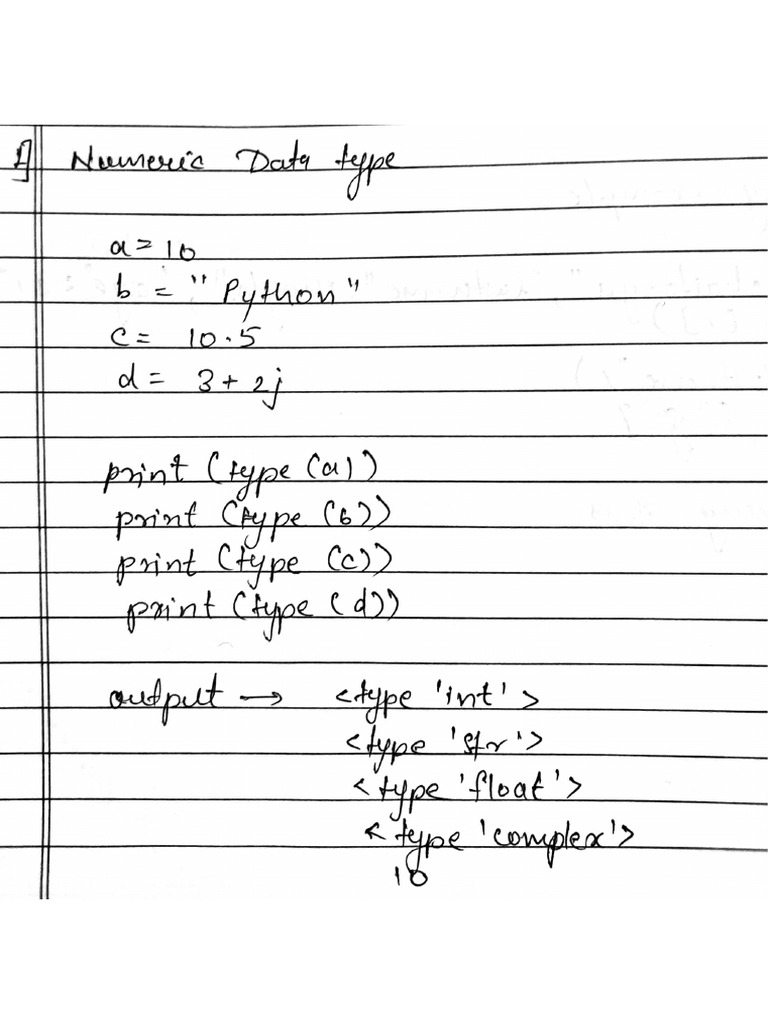 1] Numeric Data type
a = 10
b = "Python"
c = 10.5
d = 3 + 2j
print (type (a))
print (type (b))
print (type (c))
print (type (d))
output → <type 'int'>
<type 'str'>
<type 'float'>
<type 'complex'>
10